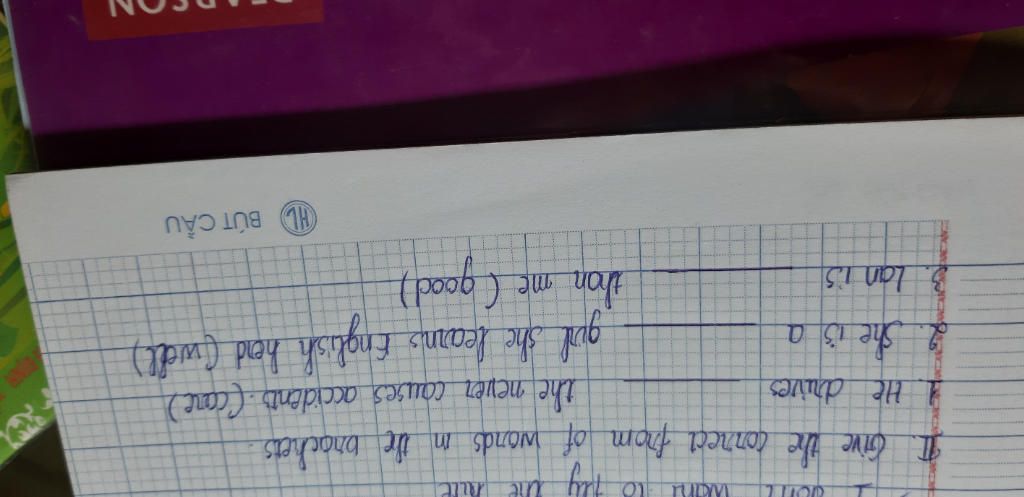 I don't want to fly the kite
II. Give the correct from of words in the brackets.
1. He drives ________ the never causes accidents. (care)
2. She is a ________ girl she learns English herd (well)
3. Lan is ________ than me (good)
HL BÚT CẦU
PEARSON